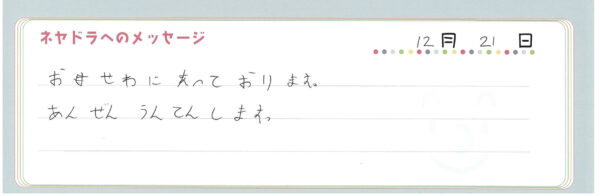 ネヤドラへのメッセージ
12月 21日
お母せわに夫って おります。
あんぜん うんてんします。